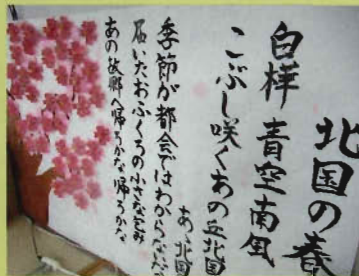 北国の春
白樺 青空 南風
こぶし咲くあの丘北国
あゝ北国
季節が都会ではわからないだ
届いたおふくろの小さな包み
あの故郷へ帰ろかな帰ろかな